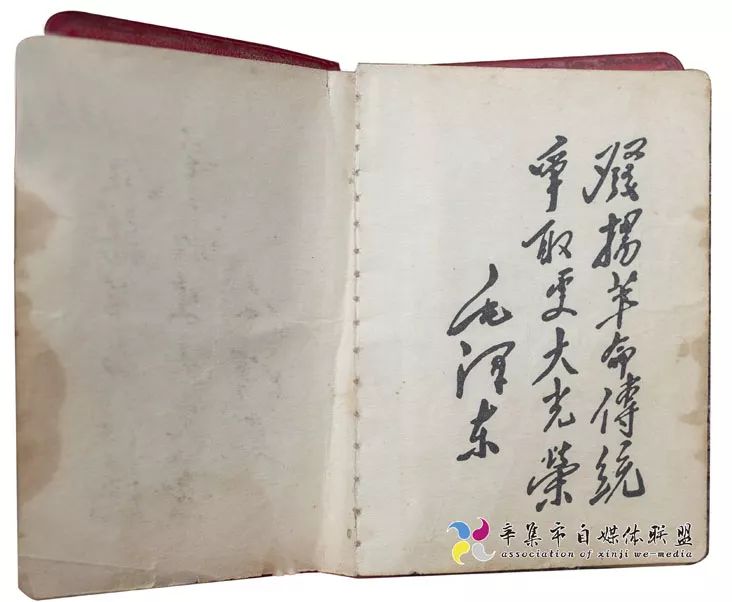 發揚革命傳統
爭取更大光榮
毛泽东
辛集市自媒体联盟
association of xinji we-media